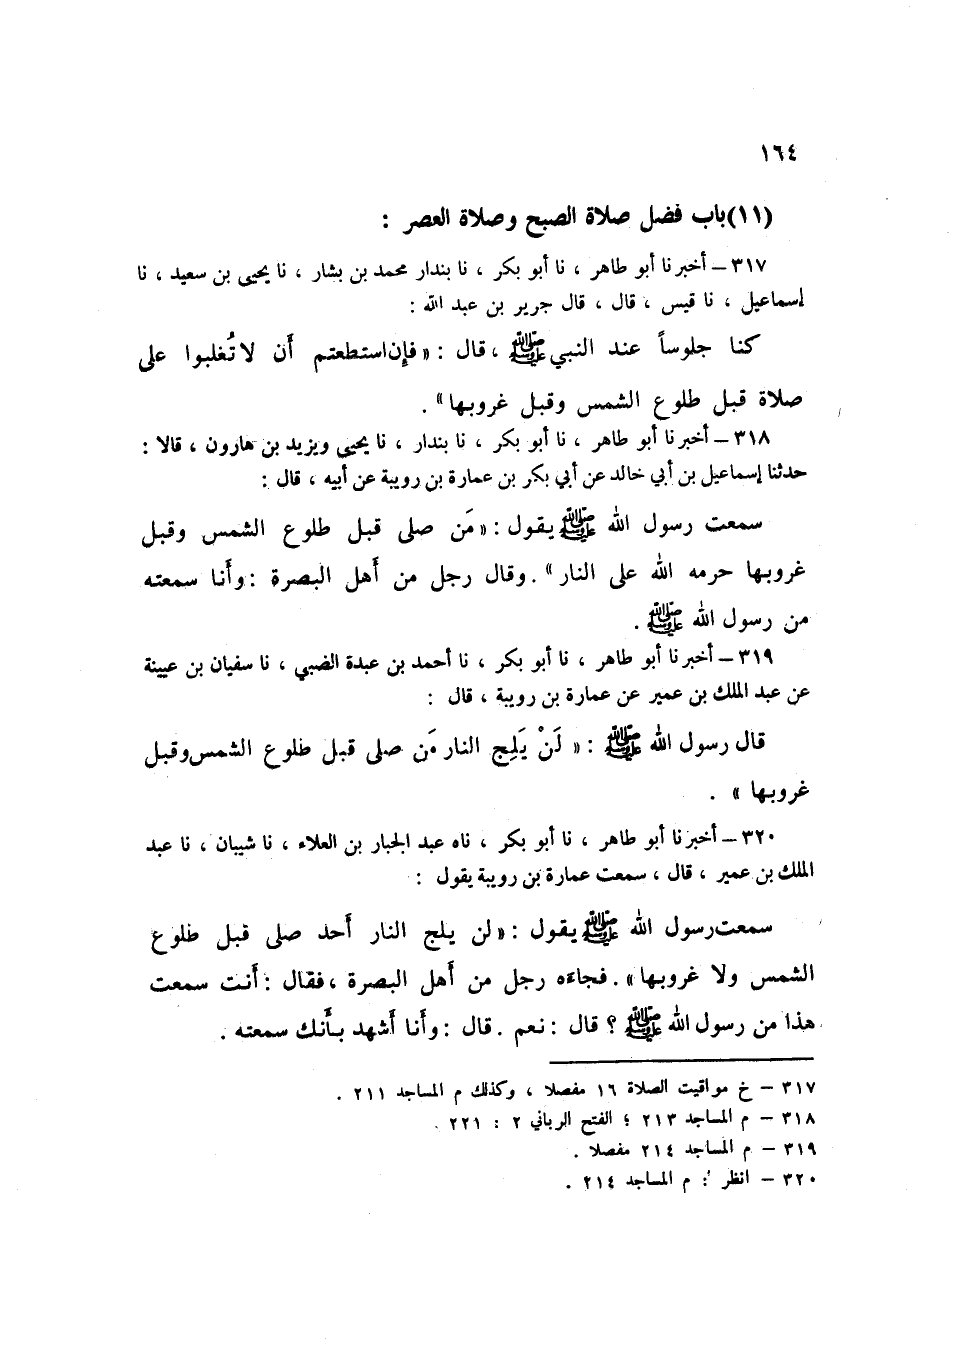 ١٦٤
(١١) باب فضل صلاة الصبح وصلاة العصر :
٣١٧ – أخبرنا أبو طاهر ، نا أبو بكر ، نا بندار محمد بن بشار ، نا يحيى بن سعيد ، نا
إسماعيل ، نا قيس ، قال ، قال جرير بن عبد الله :
كنا جلوساً عند النبي ﷺ ، قال : « فإن استطعتم أن لا تُغلبوا على
صلاة قبل طلوع الشمس وقبل غروبها » .
٣١٨ – أخبرنا أبو طاهر ، نا أبو بكر ، نا بندار ، نا يحيى ويزيد بن هارون ، قالا :
حدثنا إسماعيل بن أبي خالد عن أبي بكر بن عمارة بن رويبة عن أبيه ، قال :
سمعت رسول الله ﷺ يقول : « مَن صلى قبل طلوع الشمس وقبل
غروبها حرمه الله على النار » . وقال رجل من أهل البصرة : وأنا سمعته
من رسول الله ﷺ .
٣١٩ – أخبرنا أبو طاهر ، نا أبو بكر ، نا أحمد بن عبدة الضبي ، نا سفيان بن عيينة
عن عبد الملك بن عمير عن عمارة بن رويبة ، قال :
قال رسول الله ﷺ : « لَنْ يَلِج النار مَن صلى قبل طلوع الشمس وقبل
غروبها » .
٣٢٠ – أخبرنا أبو طاهر ، نا أبو بكر ، ناه عبد الجبار بن العلاء ، نا شيبان ، نا عبد
الملك بن عمير ، قال ، سمعت عمارة بن رويبة يقول :
سمعت رسول الله ﷺ يقول : « لن يلج النار أحد صلى قبل طلوع
الشمس ولا غروبها » . فجاءه رجل من أهل البصرة ، فقال : أنت سمعت
هذا من رسول الله ﷺ ؟ قال : نعم . قال : وأنا أشهد بأنك سمعته .
٣١٧ – خ مواقيت الصلاة ١٦ مفصلا ، وكذلك م المساجد ٢١١ .
٣١٨ – م المساجد ٢١٣ ؛ الفتح الرباني ٢ : ٢٢١ .
٣١٩ – م المساجد ٢١٤ مفصلا .
٣٢٠ – انظر : م المساجد ٢١٤ .